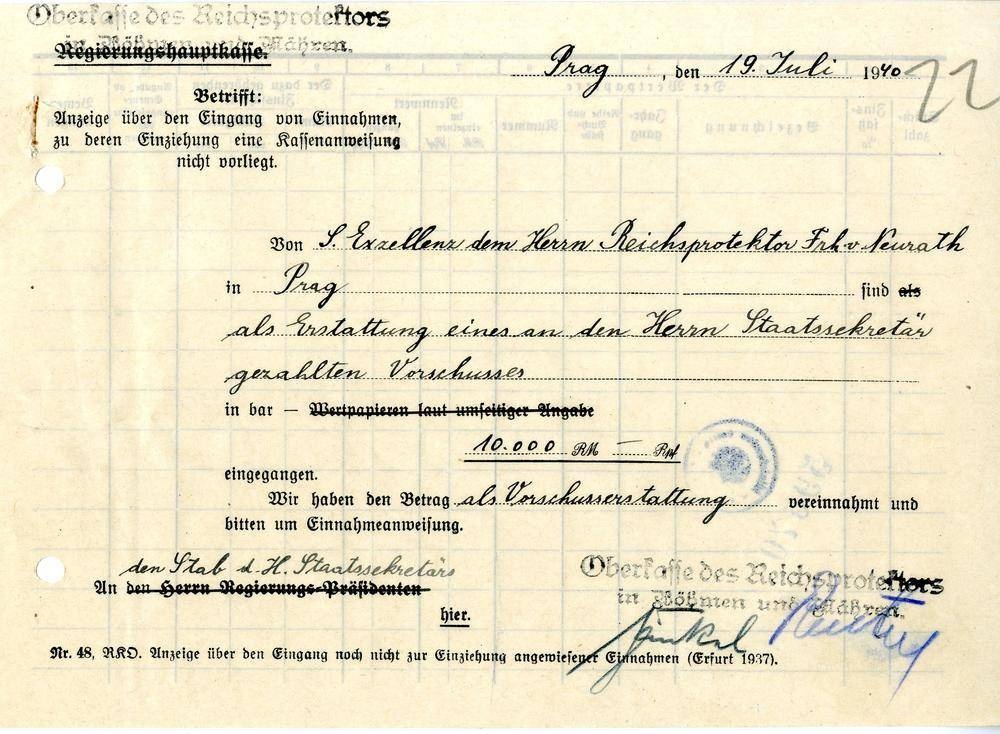 Oberkasse des Reichsprotektors
in Böhmen und Mähren.
Regierungshauptkasse.
Prag, den 19. Juli 1940
22
Betrifft:
Anzeige über den Eingang von Einnahmen,
zu deren Einziehung eine Kassenanweisung
nicht vorliegt.
Von S. Exzellenz dem Herrn Reichsprotektor Frh. v. Neurath
in Prag sind als
als Erstattung eines an den Herrn Staatssekretär
gezahlten Vorschusses
in bar — Wertpapieren laut umseitiger Angabe
10.000 RM — Rpf
eingegangen.
Wir haben den Betrag als Vorschusserstattung vereinnahmt und
bitten um Einnahmeanweisung.
den Stab d. H. Staatssekretärs
An den Herrn Regierungs-Präsidenten
hier.
Oberkasse des Reichsprotektors
in Böhmen und Mähren.
Nr. 48, RKO. Anzeige über den Eingang noch nicht zur Einziehung angewiesener Einnahmen (Erfurt 1937).